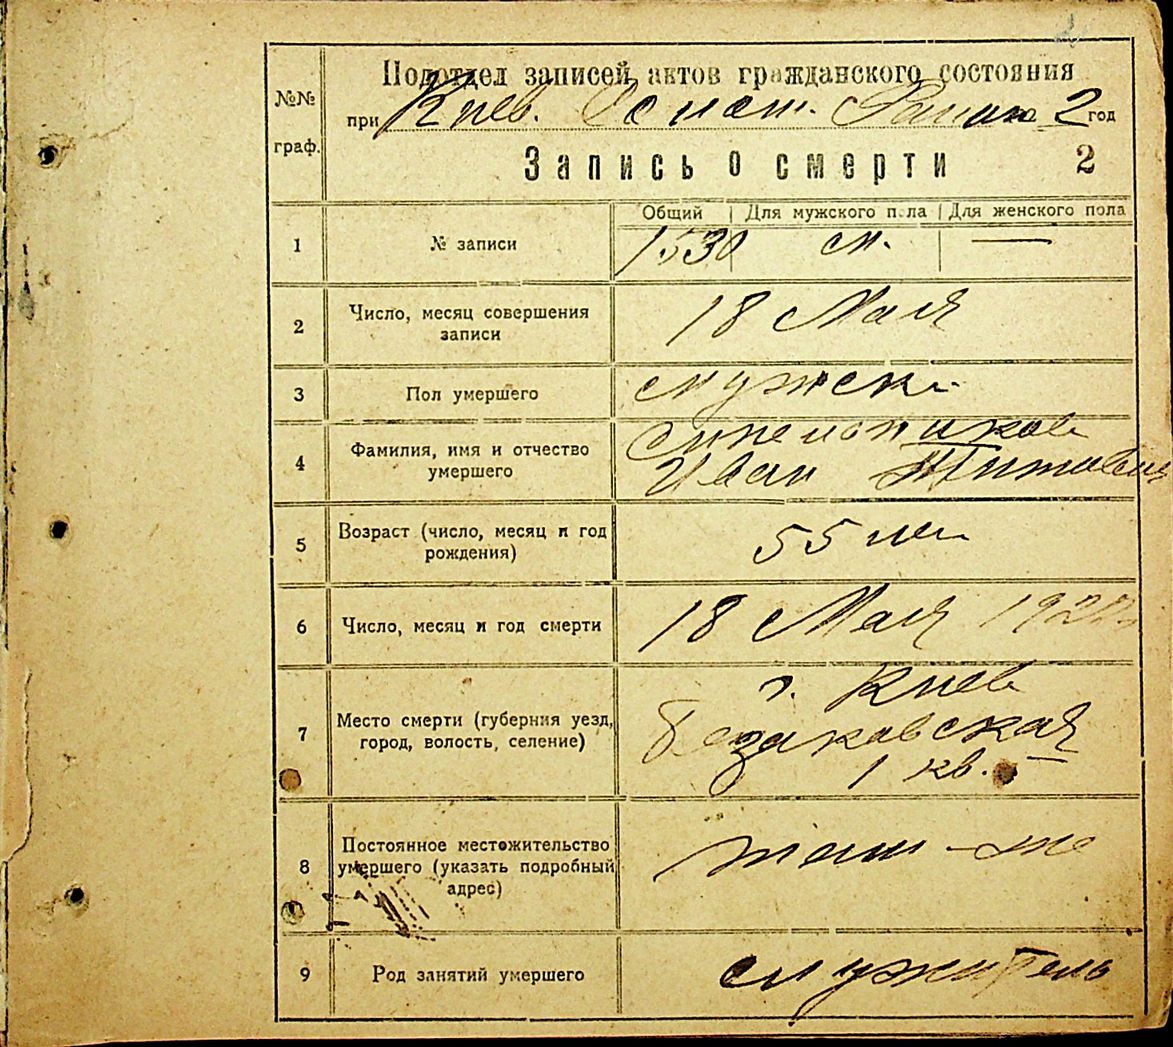 Подотдел записей актов гражданского состояния
№№
граф.
при Киев. 2 год
Запись о смерти
2
Общий | Для мужского пола | Для женского пола
1 № записи 1530 м. —
2 Число, месяц совершения
записи
18 Мая
3 Пол умершего мужск.
4 Фамилия, имя и отчество
умершего
Синельников
Иван Титович
5 Возраст (число, месяц и год
рождения)
55 лет
6 Число, месяц и год смерти 18 Мая 1922
7 Место смерти (губерния уезд,
город, волость, селение)
г. Киев
Безаковская
1 кв.
8 Постоянное местожительство
умершего (указать подробный
адрес)
там-же
9 Род занятий умершего служитель